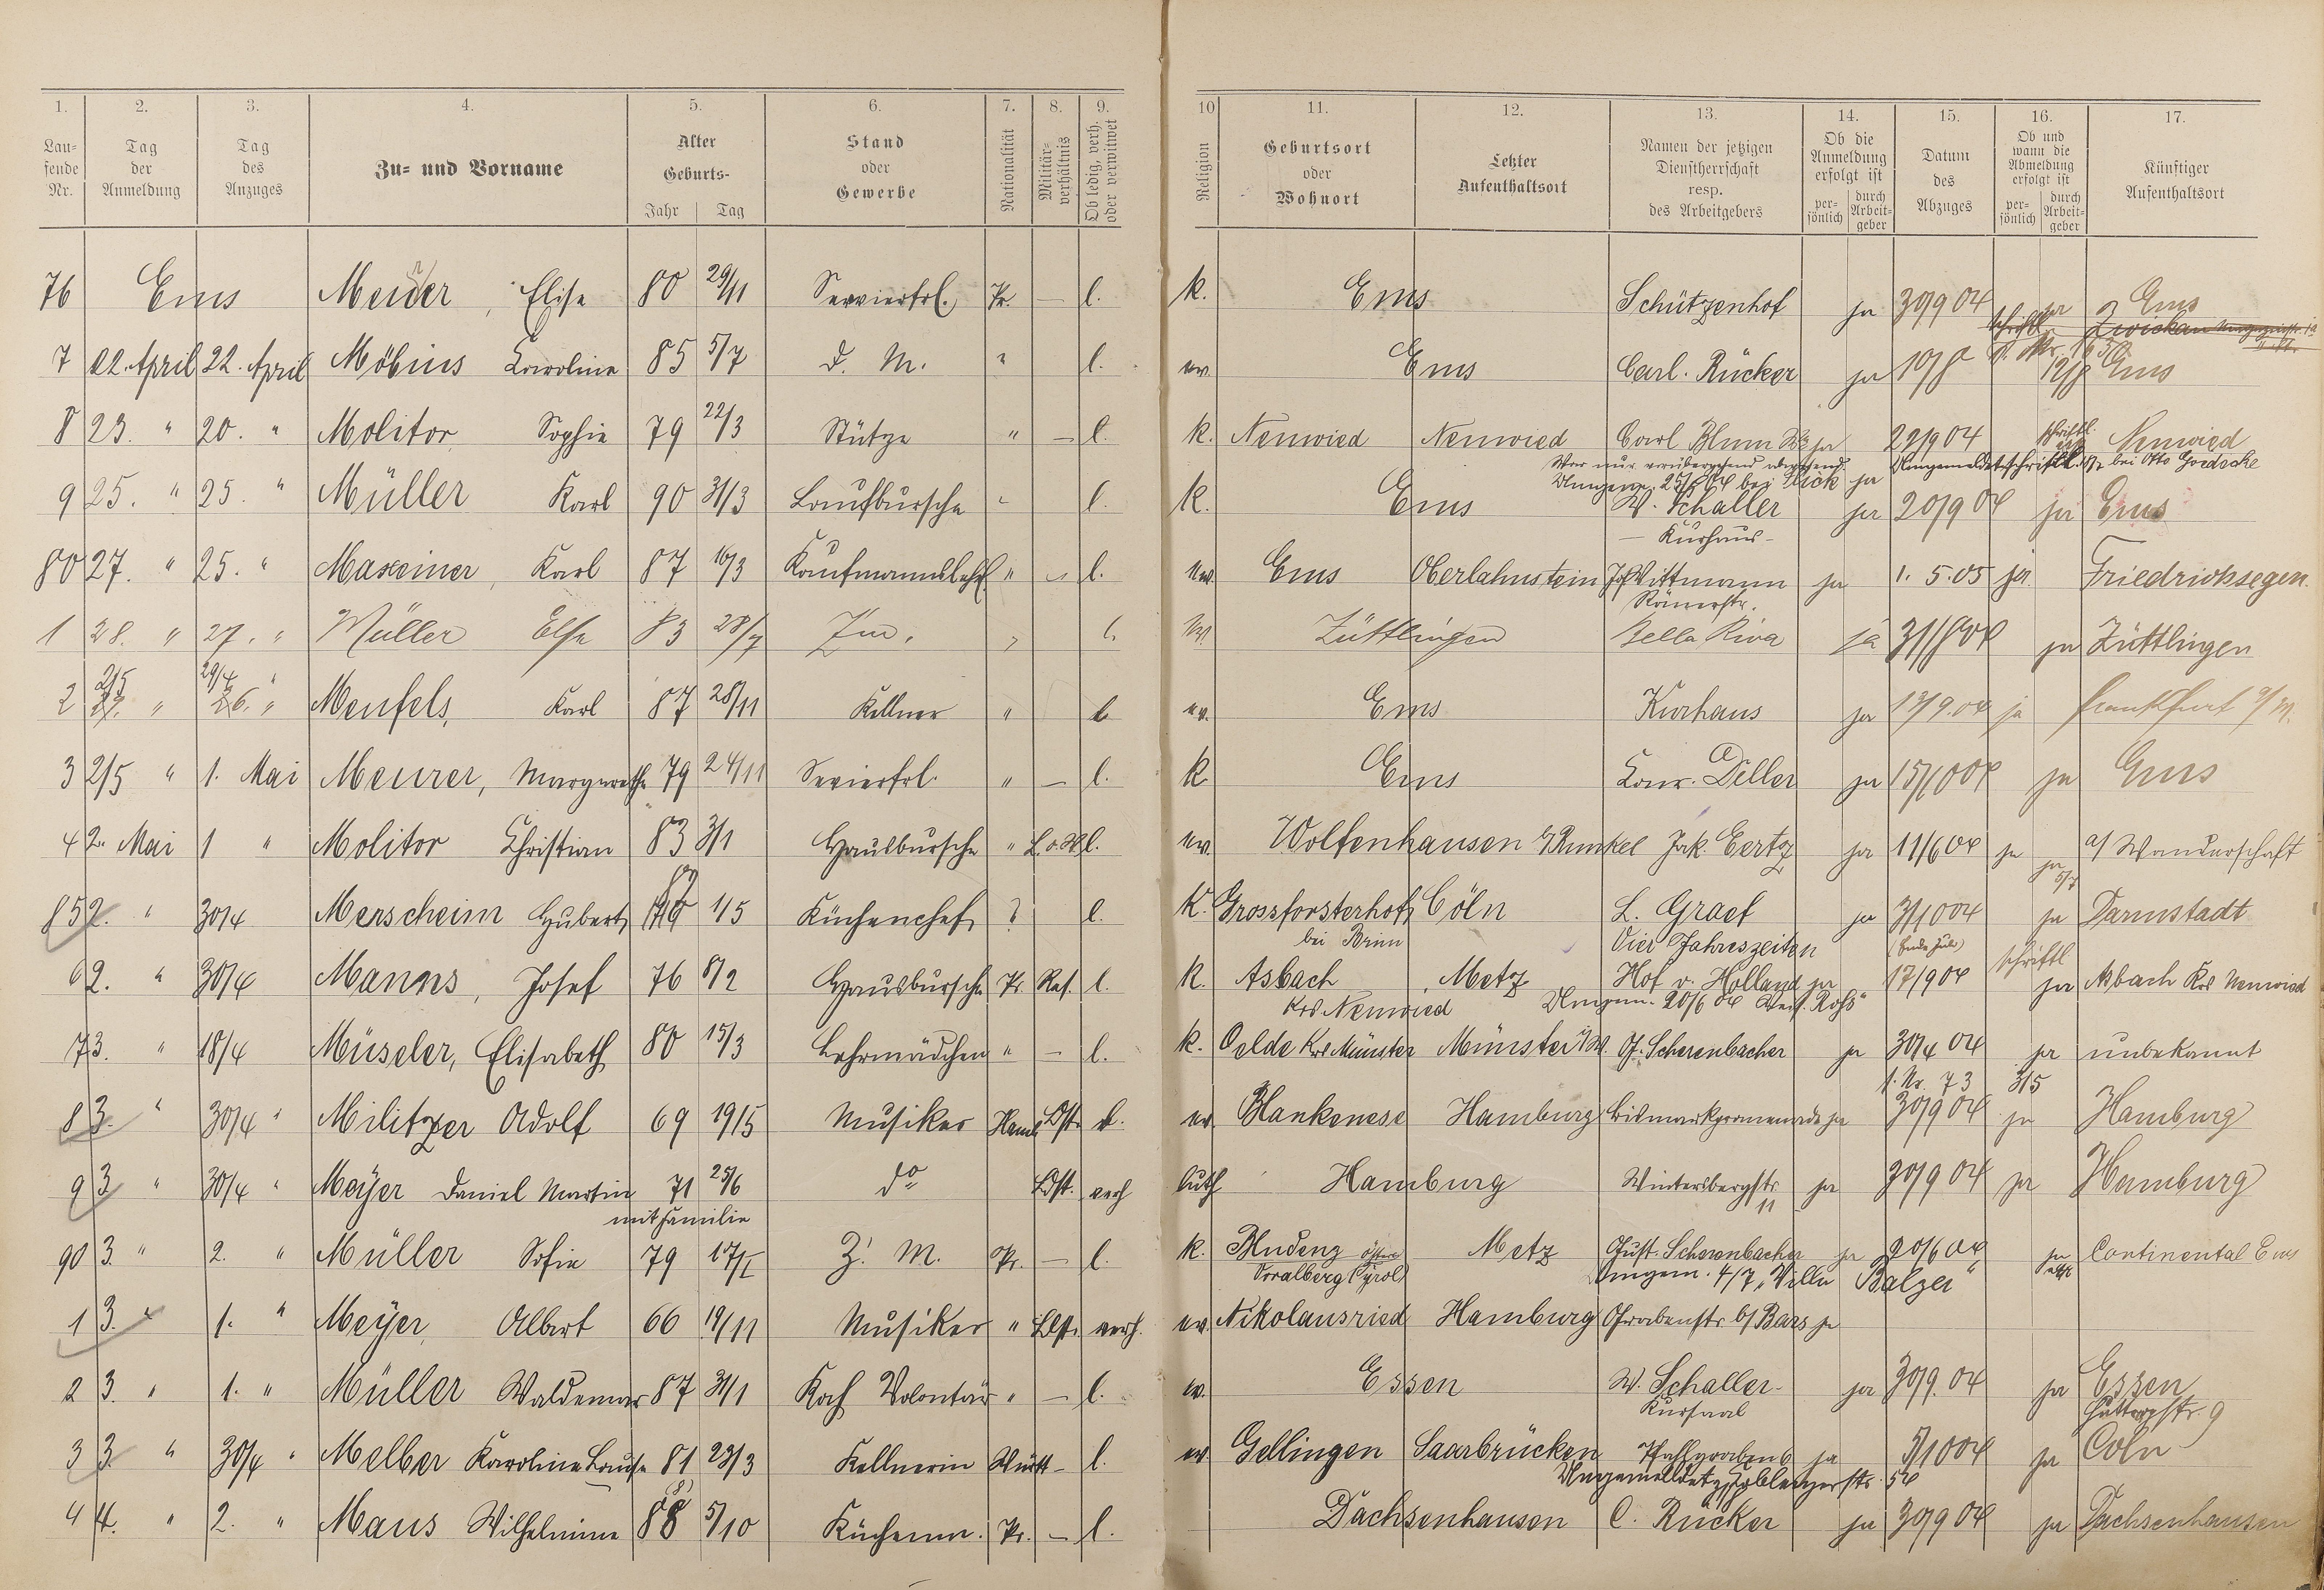 1. 2. 3. 4. 5. 6. 7. 8. 9. 10 11. 12. 13. 14. 15. 16. 17.
Lau-
fende
Nr.
Tag
der
Anmeldung
Tag
des
Anzuges
Zu- und Vorname
Alter
Geburts-
Jahr Tag
Stand
oder
Gewerbe
Nationalität
Militär-
verhältnis
Ob ledig, verh.
oder verwitwet
Religion
Geburtsort
oder
Wohnort
Letzter
Aufenthaltsort
Namen der jetzigen
Dienstherrschaft
resp.
des Arbeitgebers
Ob die
Anmeldung
erfolgt ist
per-
sönlich
durch
Arbeit-
geber
Datum
des
Abzuges
Ob und
wann die
Abmeldung
erfolgt ist
per-
sönlich
durch
Arbeit-
geber
Künftiger
Aufenthaltsort
76 Ems Elise 80 29/11 Servierfrl. Pr. — l. k. Ems Schützenhof ja 30/9 04 ja Ems
schriftl. Zwickau
7 22. April 22. April Möbius Karoline 85 5/7 d. M. " l. ev. Ems Carl. Rücker ja 10/8 12/8 Ems
8 23. " 20. " Molitor Sophie 79 22/3 Stütze " — l. k. Neuwied Neuwied Carl Blum ja 22/9 04 schriftl. Neuwied
War nur vorübergehend abwesend. Umgemeldet schriftl. bei Otto Goedecke
9 25. " 25. " Müller Karl 90 31/3 Laufbursche " l. k. Ems W. Schaller ja 20/9 04 ja Ems
- Kurhaus -
80 27. " 25. " Maxeiner, Karl 87 16/3 Kaufmannslehrl. " " l. ev. Ems Oberlahnstein Jos Wittmann ja 1. 5. 05 ja Friedrichsegen.
Römerstr.
1 28. " 27. " Müller Else 83 28/7 Zm. " l. ev. Züttlingen Bella Riva ja 31/8 04 ja Züttlingen
2/5 29/4
2 27. " 26. " Menfels, Karl 87 28/11 Kellner " l. ev. Ems Kurhaus ja 13/9.04 ja Frankfurt a/M.
3 2/5 " 1. Mai Meurer, Margarethe 79 24/11 Servierfrl. " — l. k Ems Conr. Deller ja 15/10 04 ja Ems
4 2. Mai 1 " Molitor Christian 83 3/1 Hausbursche " l. ev. Wolfenhausen b/Runkel Jak. Eertz ja 11/6 04 ja a/ Wanderschaft
ja 5/7
85 2. " 30/4 Merscheim Hubert 1/5 Küchenchef ? l. k. Grossforsterhof Cöln L. Graef ja 3/10 04 ja Darmstadt
bei Brim Vier Jahreszeiten (Ende Juli)
6 2. " 30/4 Manns, Josef 76 8/2 Hausbursche Pr. Res. l. k. Asbach Metz Hof v. Holland ja 17/9 04 schriftl ja Asbach Krs Neuwied
Krs. Neuwied Umgem. 20/6 04 Weis. Roß"
7 3. " 18/4 Müseler, Elisabeth 80 15/3 Lehrmädchen " — l. k. Oelde Krs Münster Münster i/W. G. Scherenbacher ja 30/4 04 ja unbekannt
f. Nr. 73 3/5
8 3. " 30/4 " Militzer Adolf 69 19/5 Musiker Hamb. Ldst. l. ev Blankenese Hamburg Bismarkpromenade ja 30/9 04 ja Hamburg
9 3 " 30/4 " Meyer Daniel Martin 71 25/6 do Ldst. verh luth Hamburg Wintersbergstr. 11 ja 30/9 04 ja Hamburg
mit Familie
90 3. " 2. " Müller Sofie 79 17/5 Z. M. Pr. — l. k. Bludenz Metz Gust. Scherenbacher ja 20/6 04 ja Continental Ems
Voralberg (Tyrol) Umgem. 4/7 „Villa Balzer"
1 3. " 1. " Meyer Albert 66 19/11 Musiker " Ldst. verh. ev. Nikolausried Hamburg Grabenstr. b/ Bars ja
2 3. " 1. " Müller Waldemar 87 31/1 Koch Volontär " — l. ev. Essen W. Schaller- ja 30/9. 04 ja Essen
Kursaal 9
3 3. " 30/4 " Melber Karoline Louise 81 23/3 Kellnerin Württ — l. ev Gellingen Saarbrücken Pfahlgraben 6 ja 5/10 04 ja Cöln
Umgemeldet Coblenzerstr. 54
4 4. " 2. " Maus Wilhelmine 88 5/10 Küchenm. Pr. — l. Dachsenhausen C. Rücker ja 30/9 04 ja Dachsenhausen